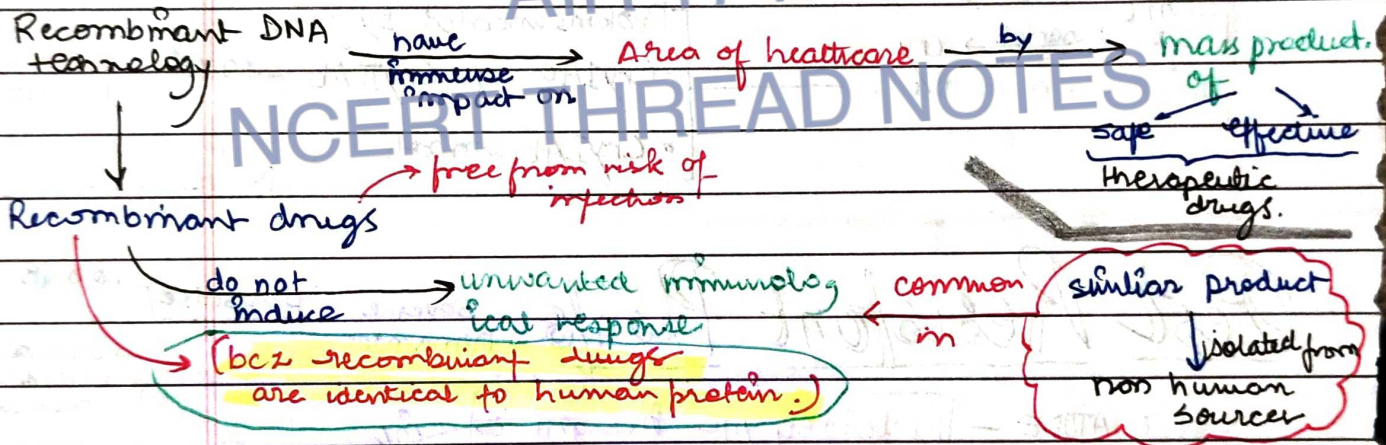 Recombinant DNA
technology
have
immense
impact on
Area of healthcare
by
mass product.
of
safe effective
therapeutic
drugs.
NCERT THREAD NOTES
free from risk of
infection
Recombinant drugs
do not
induce
unwanted immunolog
ical response
common
in
similiar product
isolated from
non human
sources
(bcz recombinant drugs
are identical to human protein.)